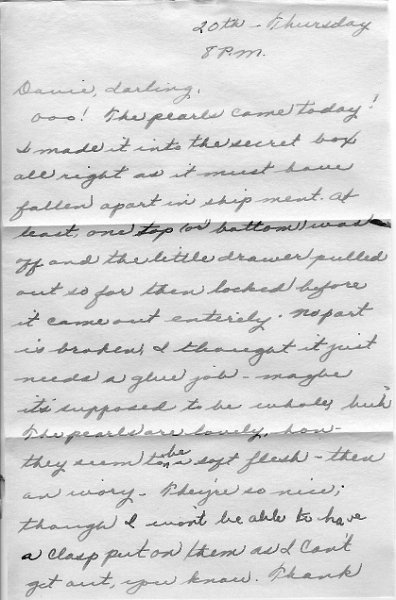 20th - Thursday
8 P.M.
Davie, darling,
Ooo! The pearls came today!
I made it into the secret box
all right as it must have
fallen apart in shipment. At
least, one top (or bottom) was
off and the little drawer pulled
out so far then locked before
it came out enterely. No part
is broken, I thought it just
needs a glue job - maybe
it's supposed to be whole, huh?
The pearls are lovely, hon -
they seem to be a soft flesh - then
an ivory - They're so nice;
though I won't be able to have
a clasp put on them as I can't
get out, you know. Thank